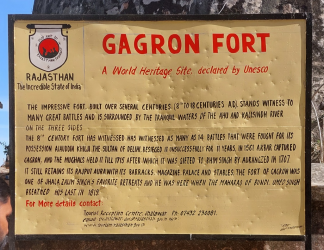 GAGRON FORT
A World Heritage Site declared by Unesco
RAJASTHAN
The Incredible State of India
THE IMPRESSIVE FORT, BUILT OVER SEVERAL CENTURIES (8TH TO 18 CENTURIES A.D), STANDS WITNESS TO
MANY GREAT BATTLES AND IS SURROUNDED BY THE TRANQUIL WATERS OF THE AHU AND KALISINDH RIVER
ON THE THREE SIDES.
THE 8TH CENTURY FORT HAS WITNESSED HAS WITNESSED AS MANY AS 14 BATTLES THAT WERE FOUGHT FOR ITS
POSSESSION ALAUDDIN KHILJI THE SULTAN OF DELHI BESIEGED IT UNSUCCESSFULLY FOR YEARS, IN 1561 AKBAR CAPTURED
GAGRON, AND THE MUGHALS HELD IT TILL 1715 AFTER WHICH IT WAS GIFTED TO BHIM SINGH BY AURANGZEB IN 1707.
IT STILL RETAINS ITS RAJPUT AURA WITH ITS BARRACKS, MAGAZINE PALACE AND STABLES. THE FORT OF GAGRON WAS
ONE OF JHALA ZALIM SINGH'S FAVORITE RETREATS AND HE WAS HERE WHEN THE MAHARAO OF BUNDI, UMED SINGH
BREATHED HIS LAST IN 1819.
For More details contact
Tourist Reception Centre, Jhalawar Ph. 07432 230081